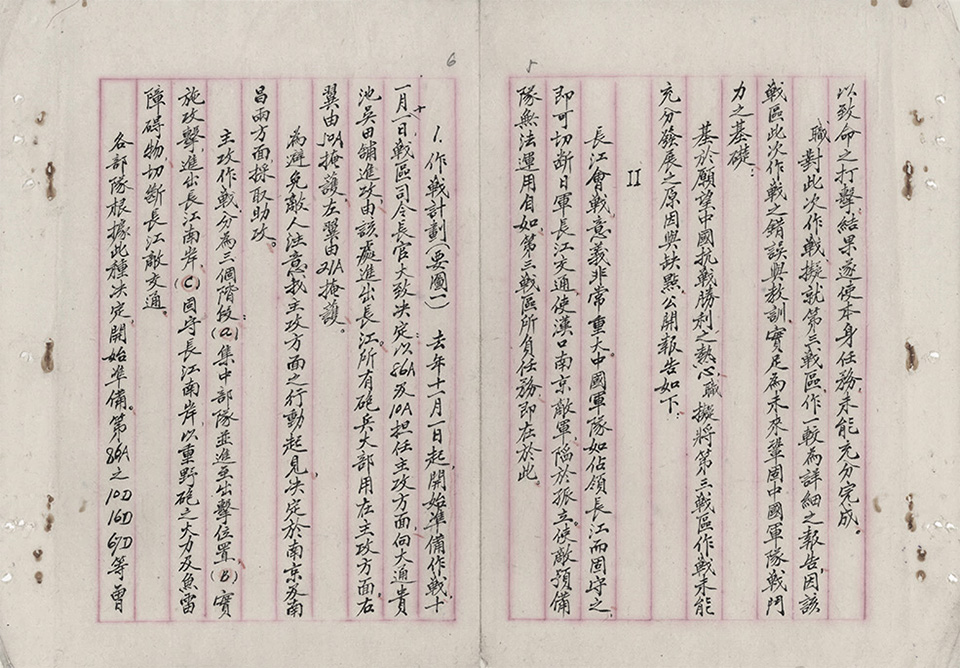 5
以致命之打擊結果遂使本身任務未能充分完成。
職對此次作戰擬就第三戰區作一較為詳細之報告因該
戰區此次作戰之錯誤與教訓實足為未來鞏固中國軍隊戰鬥
力之基礎：
基於願望中國抗戰勝利之熱心職擬將第三戰區作戰未能
充分發展之原因與缺點公開報告如下
II
長江會戰意義非常重大中國軍隊如佔領長江而固守之
即可切斷日軍長江交通使漢口南京敵軍陷於孤立使敵預備
隊無法運用自如第三戰區所負任務即在於此。
6
1.作戰計劃（要圖一） 去年十一月一日起開始準備作戰十
一月十一日戰區司令長官大致決定以86A及10A担任主攻方面向大通貴
池吳田舖進攻由該處進出長江所有砲兵大部用在主攻方面右
翼由50A掩護左翼由21A掩護。
為避免敵人注意我主攻方面之行動起見決定於南京及南
昌兩方面採取助攻。
主攻作戰分為三個階段(a)集中部隊並進至出擊位置(B)實
施攻擊進出長江南岸(C)固守長江南岸以重野砲之火力及魚雷
障碍物切斷長江敵交通
各部隊根據此種決定開始準備第86A之10D 16D 67D等曾